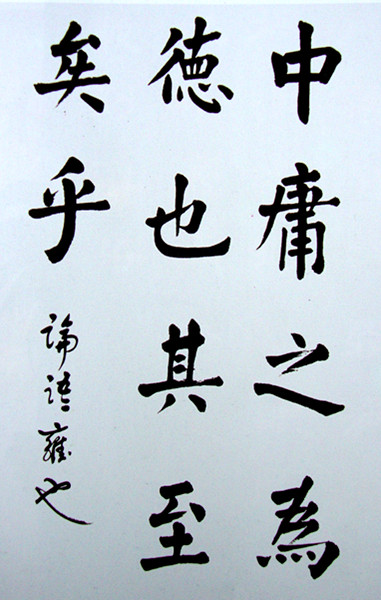 中庸之為
德也其至
矣乎
論語雍也